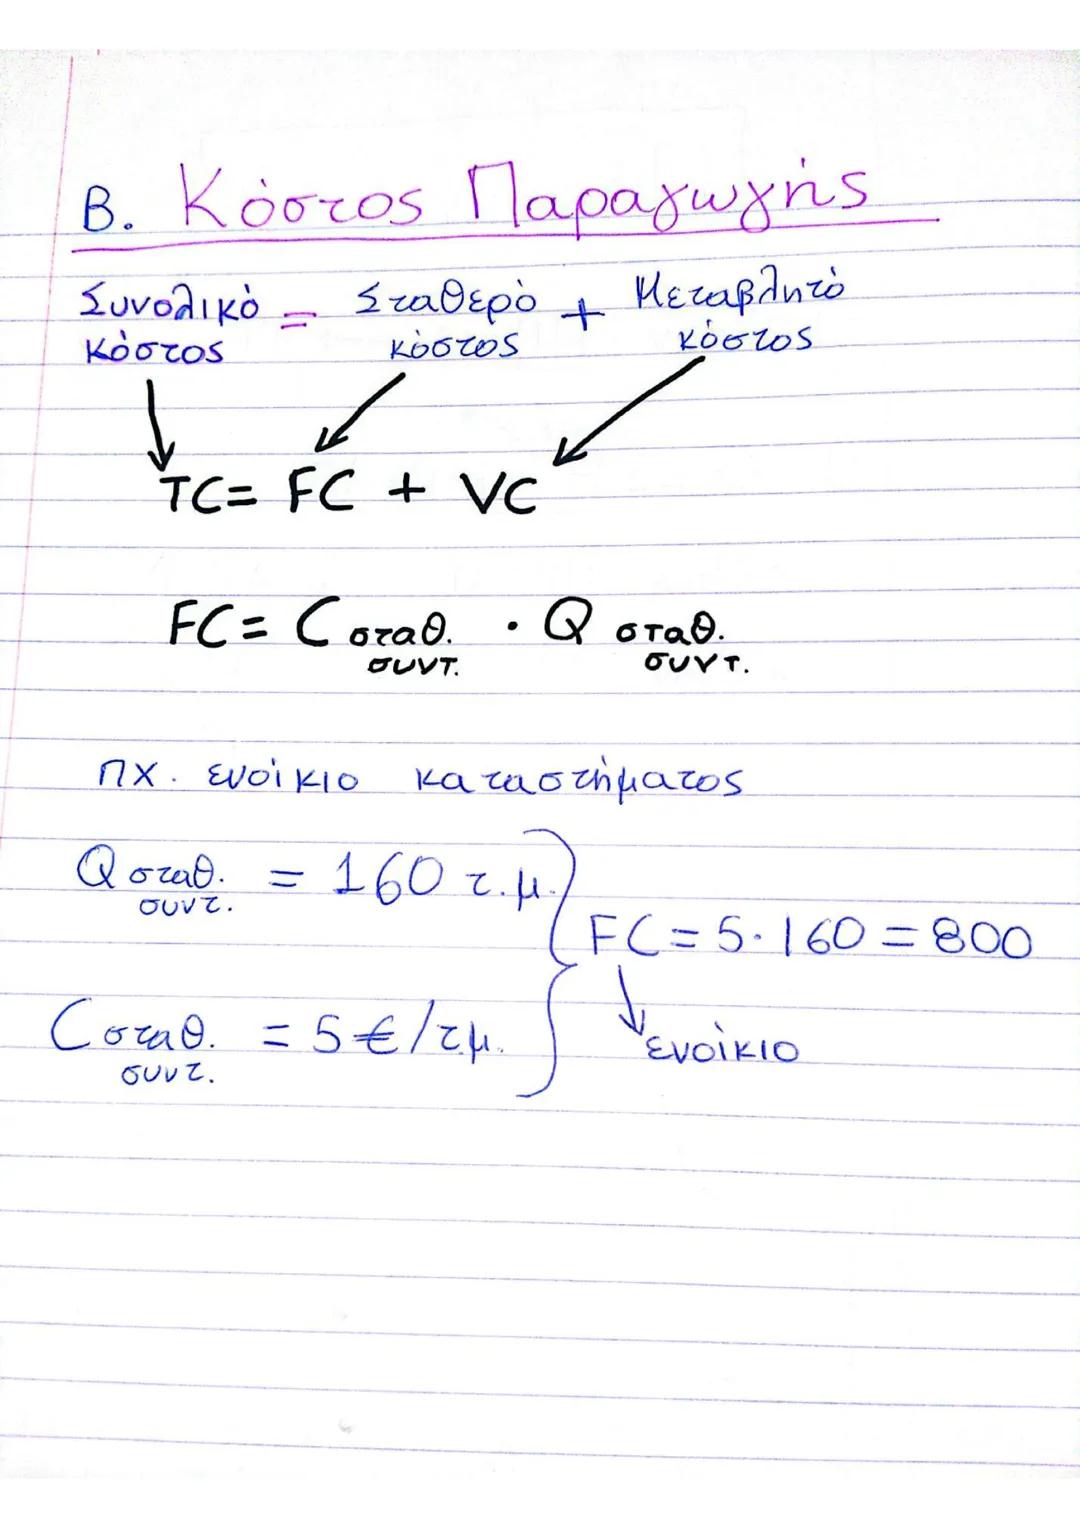 Β. Κόστος Παραγωγής
Συνολικό κόστος = Σταθερό κόστος + Μεταβλητό κόστος
TC = FC + VC
FC = C σταθ. συντ. · Q σταθ. συντ.
πχ. ενοίκιο καταστήματος
Q σταθ. συντ. = 160 τ.μ.
FC = 5·160 = 800
C σταθ. συντ. = 5€/τμ.
ενοίκιο